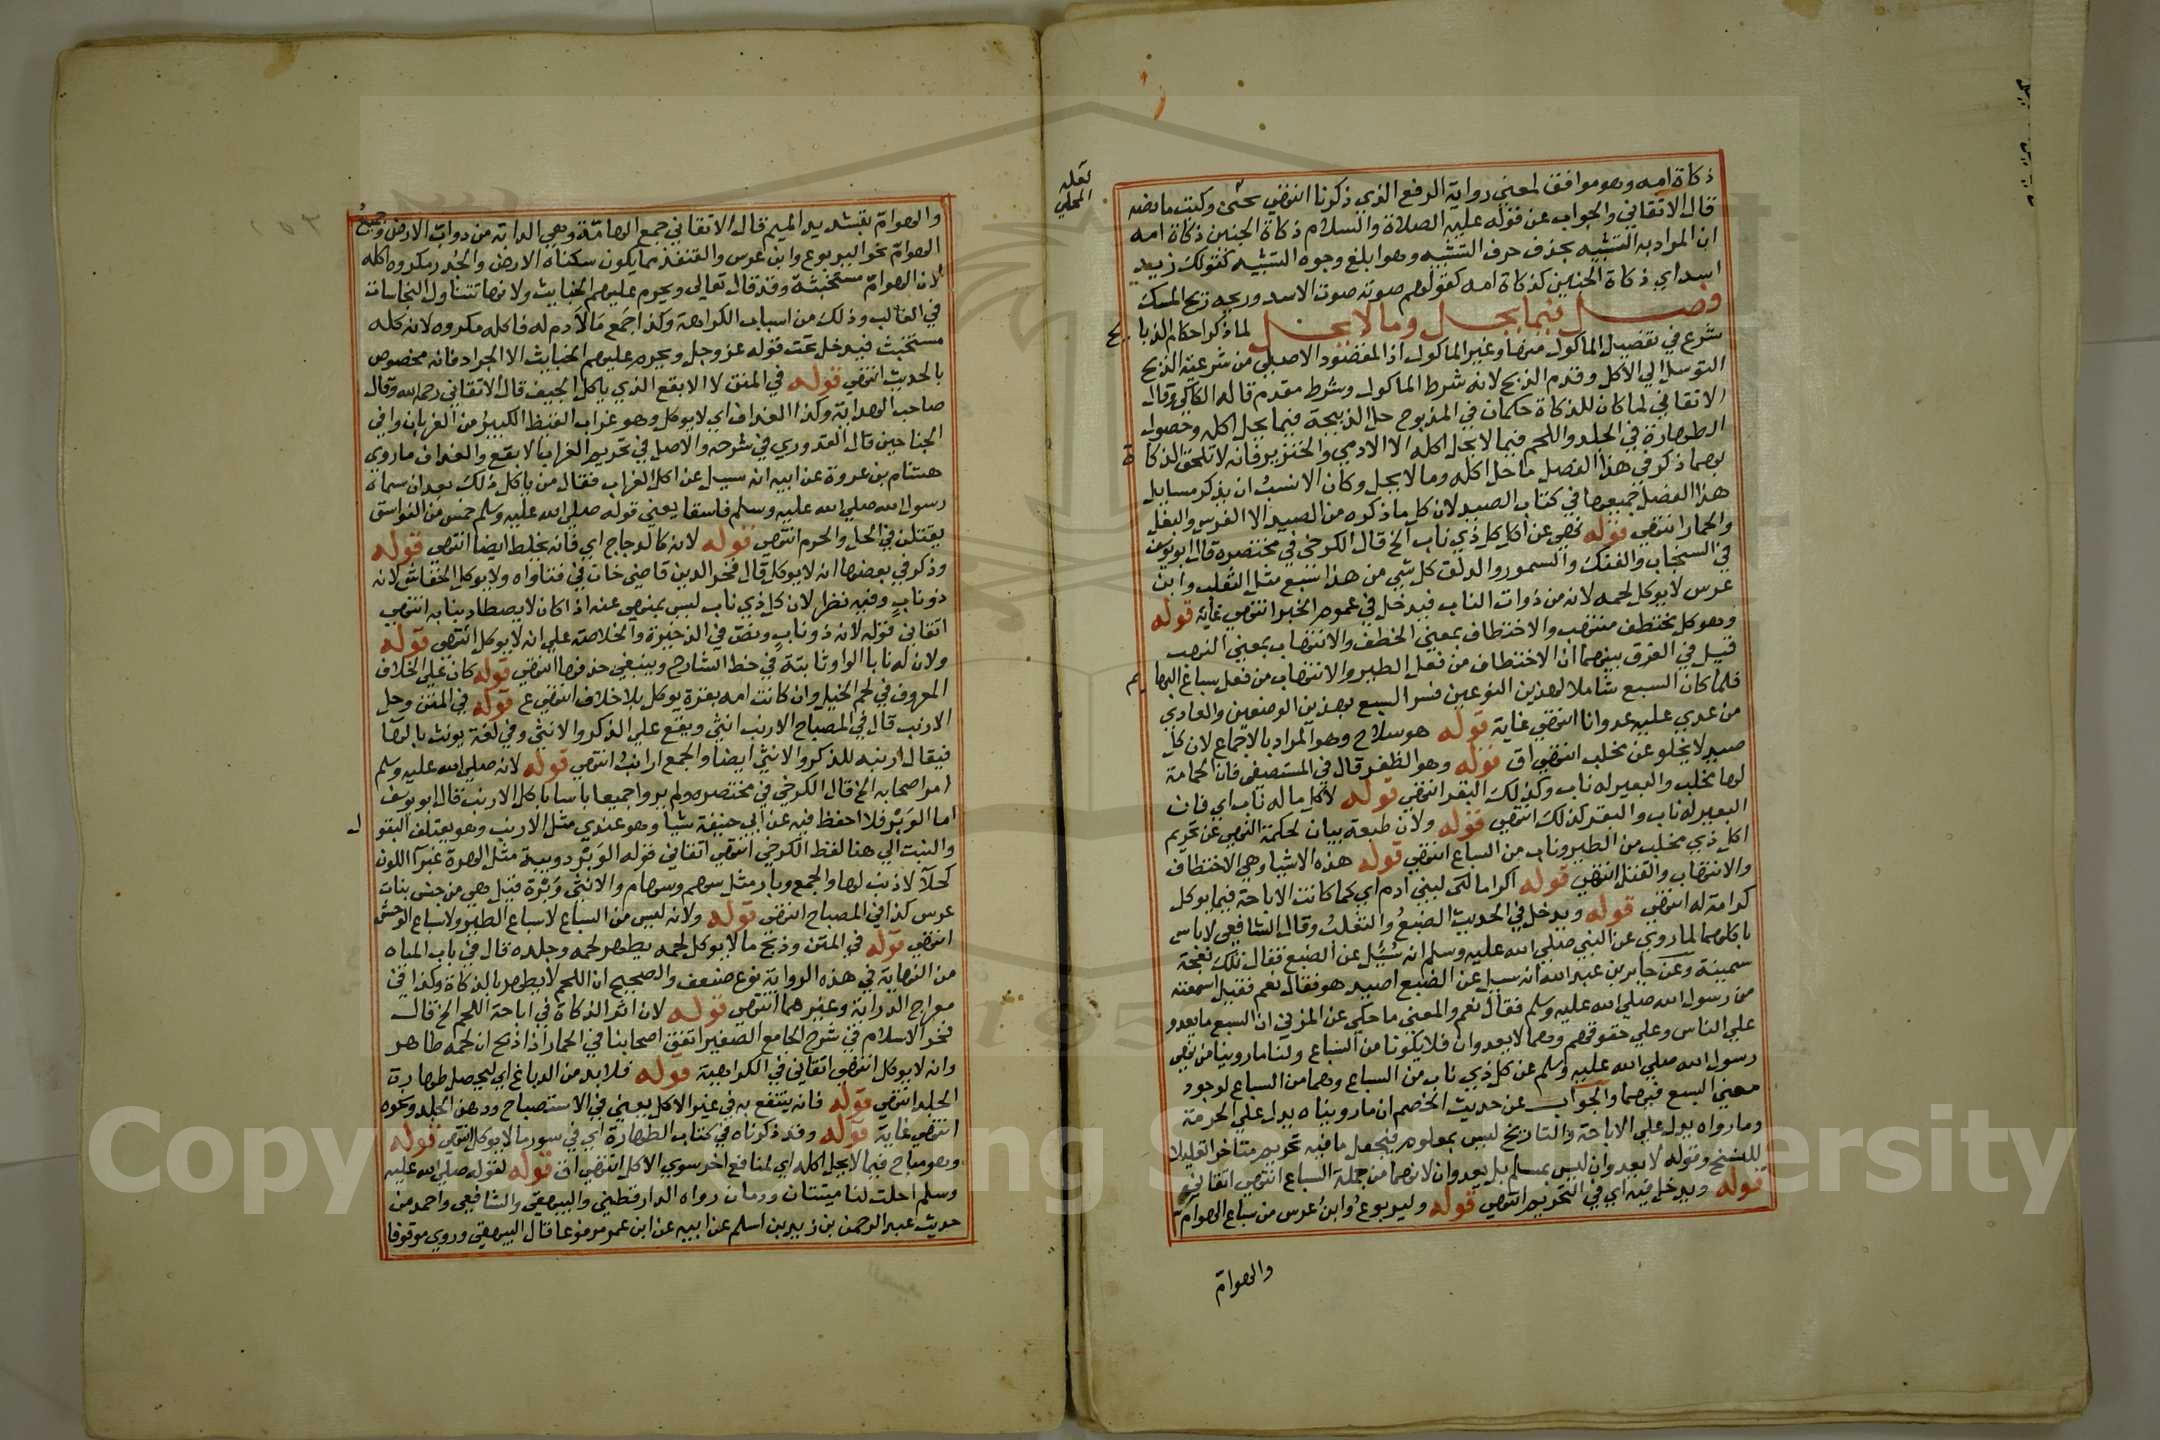 ذكاة امه وهو موافق لمعنى رواية الرفع الذي ذكرنا انتهى محشى وكتب ما نصه
قال الاتقاني والجواب عن قوله عليه الصلاة والسلام ذكاة الجنين ذكاة امه
ان المراد به التشبيه بحذف حرف التشبيه وهو ابلغ وجوه التشبيه كقولك زيد
اسد اي ذكاة الجنين كذكاة امه كقولهم صوته صوت الاسد وريحه ريح المسك
فصل فيما يحل وما لا يحل لما ذكر احكام الذبايح
شرع في تفصيل الماكول منها وغير الماكول اذ المقصود الاصلي من شرعية الذبح
التوسل الى الاكل وقدم الذبح لانه شرط الماكول وشرط مقدم قاله الكاكي وقال
الاتقاني لما كان للذكاة حكمان في المذبوح حل الذبيحة فيما يحل اكله وحصول
الطهارة في الجلد واللحم فيما لا يحل اكله الا الادمي والخنزير فانه لا تلحق الذكاة
بهما ذكر في هذا الفصل ما حل اكله وما لا يحل وكان الانسب ان يذكر مسايل
هذا الفصل جميعها في كتاب الصيد لان كل ما ذكره من الصيد الا الفرس والبغل
والحمار انتهى قوله نهى عن اكل كل ذي ناب الخ قال الكرخي في مختصره قال ابو يوسف
في السنجاب والفنك والسمور والدلق كل شي من هذا سبع مثل الثعلب وابن
عرس لا يوكل لحمه لانه من ذوات الناب فيدخل في عموم الخبر انتهى غاية قوله
وهو كل مختطف منتهب والاختطاف بمعنى الخطف والانتهاب بمعنى النهب
قيل في الفرق بينهما ان الاختطاف من فعل الطير والانتهاب من فعل سباع البهايم
فلما كان السبع شاملا لهذين النوعين فسر السبع بهذين الوصفين والعادي
من عدي عليه عدوانا انتهى غاية قوله هو سلاح وهو المراد بالاجماع لان كل
صيد لا يخلو عن مخلب انتهى اق قوله وهو الظفر قال في المستصفى فان الحمامة
لها مخلب والبعير له ناب وكذلك البقر انتهى قوله لا كل ما له ناب اي فان
البعير له ناب والبقر كذلك انتهى قوله ولان طبعه بيان لحكمة النهي عن تحريم
اكل ذي مخلب من الطير وناب من السباع انتهى قوله هذه الاشيا وهي الاختطاف
والانتهاب والقتل انتهى قوله اكراما لبني ادم اي كما كانت الاباحة فيما يوكل
كرامة له انتهى قوله ويدخل في الحديث الضبع والثعلب وقال الشافعي لا باس
باكلهما لما روي عن النبي صلى الله عليه وسلم انه سئل عن الضبع فقال تلك نعجة
سمينة وعن جابر بن عبد الله انه سيل عن الضبع اصيد هو فقال نعم فقيل اسمعته
من رسول الله صلى الله عليه وسلم فقال نعم والمعنى ما حكي عن المزني ان السبع ما يعدو
على الناس وعلى حقوقهم وهما لا يعدوان فلا يكونا من السباع ولنا ما روينا من نهي
رسول الله صلى الله عليه وسلم عن كل ذي ناب من السباع وهما من السباع لوجود
معنى السبع فيهما والجواب عن حديث الخصم ان ما رويناه يدل على الحرمة
وما رواه يدل على الاباحة والتاريخ ليس بمعلوم فيجعل ما فيه تحريم متاخرا تقليلا
للنسخ وقوله لا يعدوان ليس بمسلم بل يعدوان لانهما من جملة السباع انتهى اتقاني
قوله ويدخل فيه اي في التحريم انتهى قوله واليربوع وابن عرس من سباع الهوام
والهوام
نقله
المحلي
والهوام بتشديد الميم قال الاتقاني جمع الهامة وهي الدابة من دواب الارض وجميع
الهوام نحو اليربوع وابن عرس والقنفذ مما يكون سكناه الارض والجدر مكروه اكله
لان الهوام مستخبثة وقد قال تعالى ويحرم عليهم الخبايث ولانها تتناول النجاسات
في الغالب وذلك من اسباب الكراهة وكذا جميع ما لا دم له فاكله مكروه لانه كله
مستخبث فيدخل تحت قوله عز وجل ويحرم عليهم الخبايث الا الجراد فانه مخصوص
بالحديث انتهى قوله في المتن لا الابقع الذي ياكل الجيف قال الاتقاني رحمه الله وقال
صاحب الهداية وكذا الغداف اي لا يوكل وهو غراب القيظ الكبير من الغربان وافي
الجناحين قال القدوري في شرحه والاصل في تحريم الغراب الابقع والغداف ما روى
هشام بن عروة عن ابيه انه سيل عن اكل الغراب فقال من ياكل ذلك بعد ان سماه
رسول الله صلى الله عليه وسلم فاسقا يعني قوله صلى الله عليه وسلم خمس من الفواسق
يقتلن في الحل والحرم انتهى قوله لانه كالدجاج اي فانه يخلط ايضا انتهى قوله
وذكر في بعضها انه لا يوكل قال فخر الدين قاضي خان في فتاواه ولا يوكل الخفاش لانه
ذو ناب وفيه نظر لان كل ذي ناب ليس بمنهي عنه اذا كان لا يصطاد بنابه انتهى
اتقاني قوله لانه ذو ناب ونص في الذخيرة والخلاصة على انه لا يوكل انتهى قوله
ولان له نابا الواو ثابتة في خط الشارح وينبغي حذفها انتهى قوله كان على الخلاف
المعروف في لحم الخيل وان كانت امه بقرة يوكل بلا خلاف انتهى ع قوله في المتن وحل
الارنب قال في المصباح الارنب انثى ويقع على الذكر والانثى وفي لغة يونث بالهآ
فيقال ارنبه للذكر والانثى ايضا والجمع ارانب انتهى قوله لانه صلى الله عليه وسلم
امر اصحابه الخ قال الكرخي في مختصره ولم يروا جميعا باسا باكل الارنب قال ابو يوسف
اما الوبر فلا احفظ فيه عن ابي حنيفة شيا وهو عندي مثل الارنب وهو يعتلف البقول
والنبت الى هنا لفظ الكرخي انتهى اتقاني قوله الوبر دويبة مثل الهرة غبرآ اللون
كحلآ لا ذنب لها والجمع وبار مثل سهم وسهام والانثى وبرة قيل هي من جنس بنات
عرس كذا في المصباح انتهى قوله ولانه ليس من السباع لا سباع الطير ولا سباع الوحش
انتهى قوله في المتن وذبح ما لا يوكل لحمه يطهر لحمه وجلده قال في باب المياه
من النهاية في هذه الرواية نوع ضعف والصحيح ان اللحم لا يطهر بالذكاة وكذا في
معراج الدراية وغيرهما انتهى قوله لان اثر الذكاة في اباحة اللحم الخ قال
فخر الاسلام في شرح الجامع الصغير اتفق اصحابنا في الحمار اذا ذبح ان لحمه طاهر
وانه لا يوكل انتهى اتقاني في الكراهية قوله فلا بد من الدباغ اي ليحصل طهارة
الجلد انتهى قوله فانه ينتفع به في غير الاكل يعني في الاستصباح ودهن الجلد ونحوه
انتهى غاية قوله وقد ذكرناه في كتاب الطهارة اي في سور ما لا يوكل انتهى قوله
وهو مباح فيما لا يحل اكله اي لمنافع اخر سوى الاكل انتهى اق قوله لقوله صلى الله عليه
وسلم احلت لنا ميتتان ودمان رواه الدارقطني والبيهقي والشافعي واحمد من
حديث عبد الرحمن بن زيد بن اسلم عن ابيه عن ابن عمر مرفوعا قال البيهقي وروي موقوفا